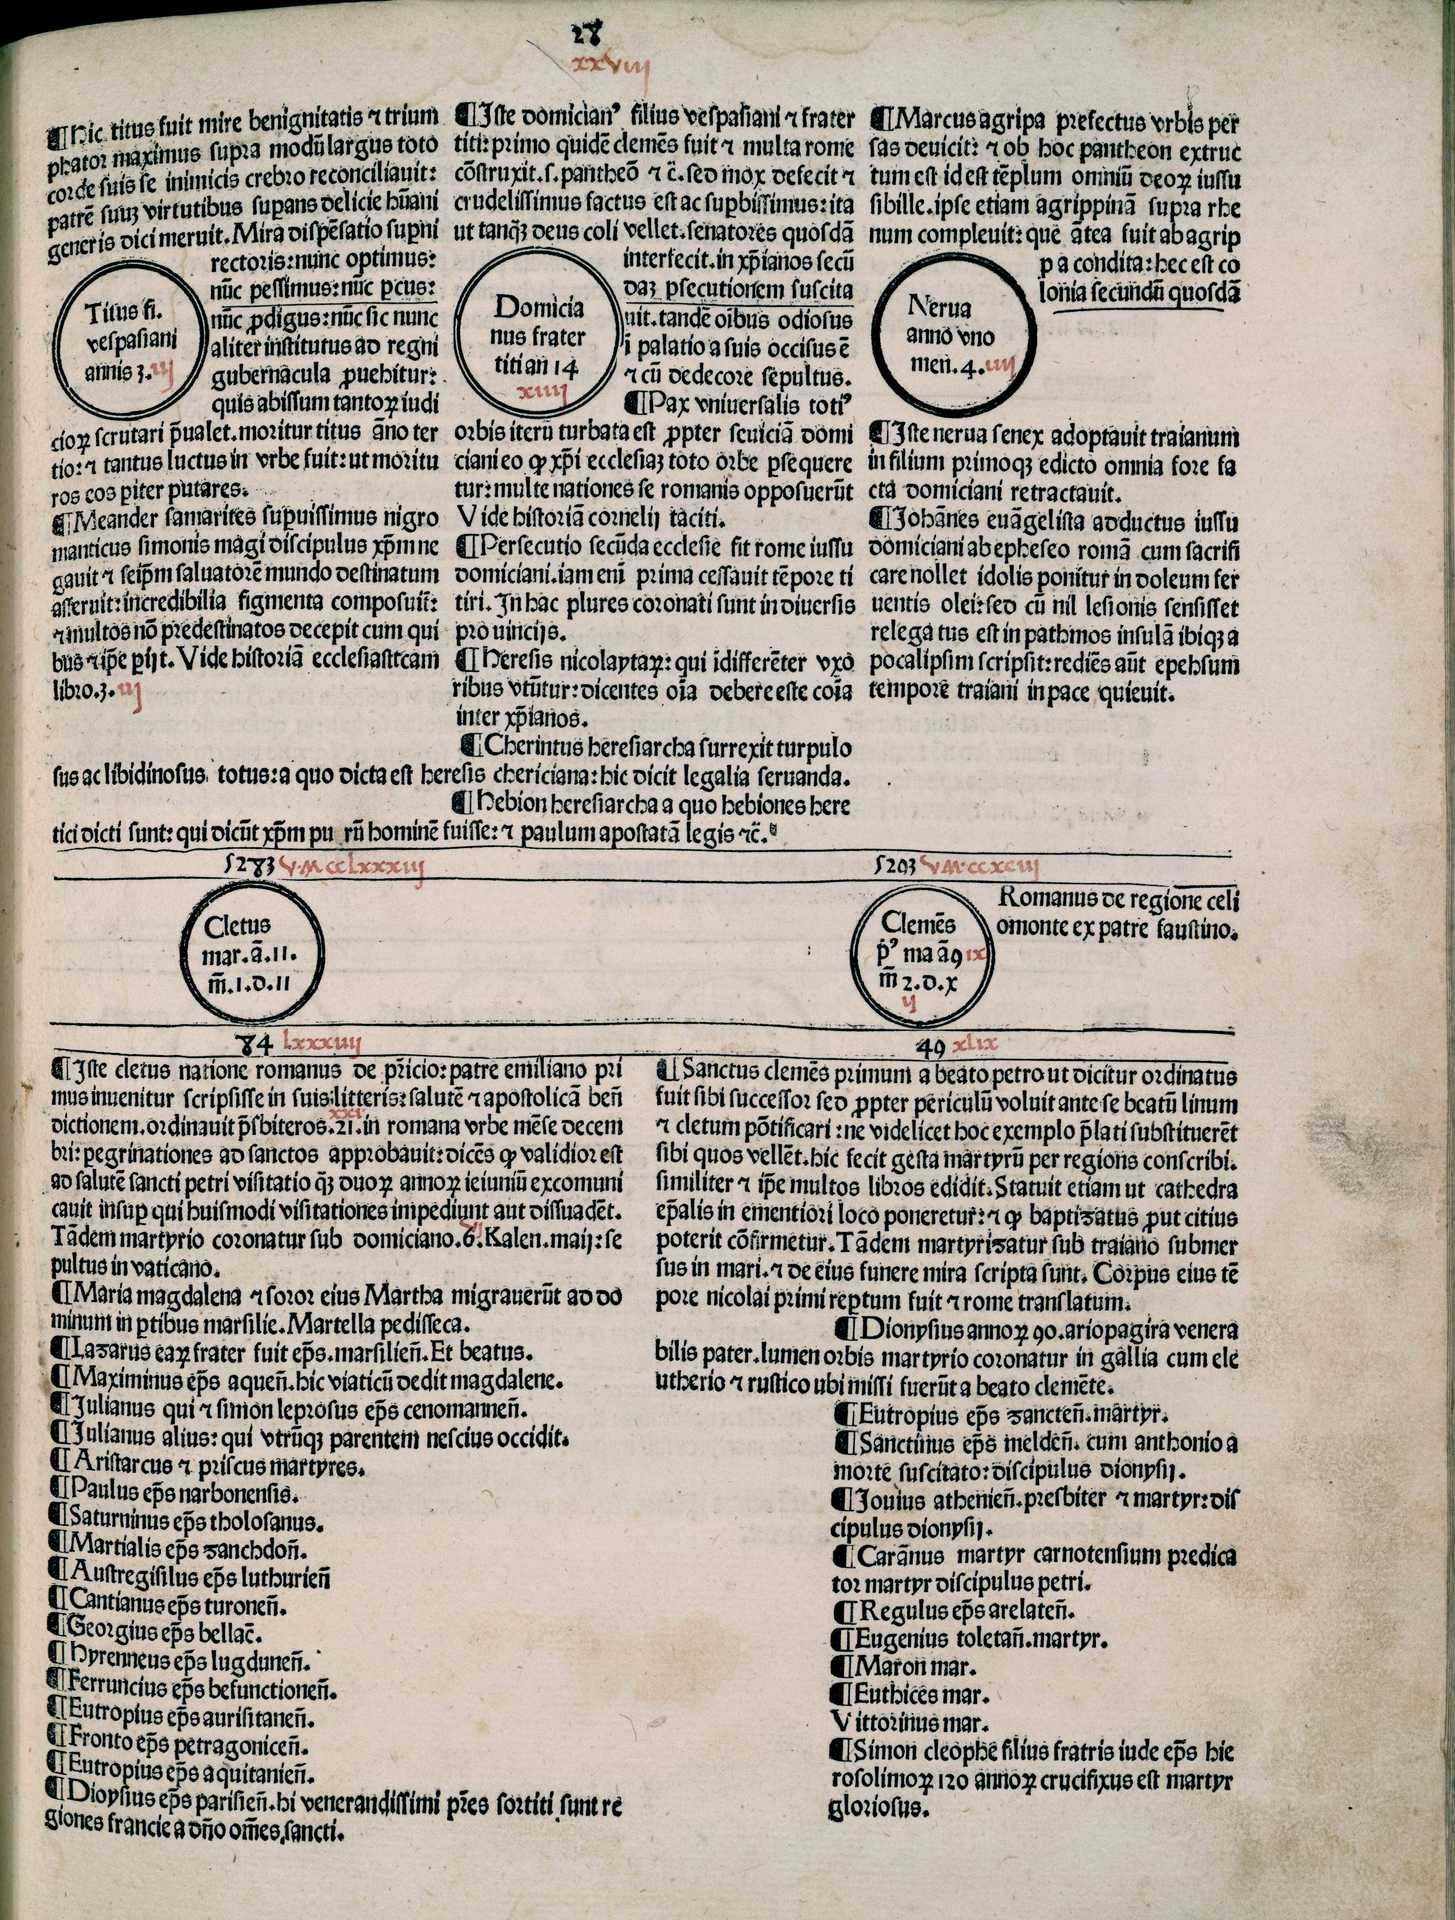 28
xxviij
¶Hic titus fuit mire benignitatis ⁊ trium
phator maximus supra modū largus toto
corde suis se inimicis crebro reconciliauit:
patrē suuꝫ virtutibus suꝑans delicie hūani
generis dici meruit. Mira dispēsatio suꝑni
rectoris: nunc optimus:
nūc pessimus: nūc ꝑcus:
nūc ꝓdigus: nūc sic nunc
aliter institutus ad regni
gubernacula ꝓuehitur:
quis abissum tantoꝝ iudi
Titus fi.
vespasiani
annis 3. iij
cioꝝ scrutari p̄ualet. moritur titus āno ter
tio: ⁊ tantus luctus in vrbe fuit: ut moritu
ros eos ꝑiter putares.
¶Meander samarites suꝑuissimus nigro
manticus simonis magi discipulus xp̄m ne
gauit ⁊ seip̄m saluatorē mundo destinatum
asseruit: incredibilia figmenta composuit̄:
⁊ multos nō predestinatos decepit cum qui
bus ⁊ ip̄e ꝑijt. Vide historiā ecclesiasticam
libro. 3. iij
¶Iste domicianꝰ filius vespasiani ⁊ frater
titi: primo quidē clemēs fuit ⁊ multa rome
cōstruxit. s. pantheō ⁊ c̄. sed mox defecit ⁊
crudelissimus factus est ac suꝑbissimus: ita
ut tanqꝫ deus coli vellet. senatores quosdā
interfecit. in xp̄ianos secū
daꝫ ꝑsecutionem suscita
uit. tandē oībus odiosus
ī palatio a suis occisus ē
⁊ cū dedecore sepultus.
¶Pax vniuersalis totiꝰ
Domicia
nus frater
titi an 14
xiiij
orbis iterū turbata est ꝓpter seuiciā domi
ciani eo ꝙ xp̄i ecclesiaꝫ toto orbe ꝑsequere
tur: multe nationes se romanis opposuerūt
Vide historiā cornelij taciti.
¶Persecutio secūda ecclesie fit rome iussu
domiciani. iam enī prima cessauit tēpore ti
tiri. In hac plures coronati sunt in diuersis
prouincijs.
¶Heresis nicolaytaꝝ: qui īdifferēter vxo
ribus vtūtur: dicentes oīa debere este coīa
inter xp̄ianos.
¶Cherintus heresiarcha surrexit turpulo
sus ac libidinosus totus: a quo dicta est heresis chericiana: hic dicit legalia seruanda.
¶Hebion heresiarcha a quo hebiones here
tici dicti sunt: qui dicūt xp̄m pu rū hominē fuisse: ⁊ paulum apostatā legis ⁊c̄.
¶Marcus agripa prefectus vrbis per
sas deuicit: ⁊ ob hoc pantheon extruc
tum est id est tēplum omniū deoꝝ iussu
sibille. ipse etiam agrippinā supra rhe
num compleuit: que ātea fuit ab agrip
p a condita: hec est co
lonia secundū quosdā
Nerua
anno vno
men. 4. iiij
¶Iste nerua senex adoptauit traianum
in filium primoqꝫ edicto omnia fore fa
cta domiciani retractauit.
¶Johānes euāgelista adductus iussu
domiciani ab epheseo romā cum sacrifi
care nollet idolis ponitur in doleum fer
uentis olei: sed cū nil lesionis sensisset
relega tus est in pathmos insulā ibiqꝫ a
pocalipsim scripsit: rediēs aūt epehsum
tempore traiani in pace quieuit.
5283 V.M.CClxxxiij
5293 VM.CCxCiij
Cletus
mar. ā. 11.
m̄. 1. d. 11
Clemēs
pꝰ ma ā 9 ix
m̄ 2. d. x
ij
Romanus de regione celi
omonte ex patre faustino.
84 lxxxiiij
49 xlix
¶Iste cletus natione romanus de pr̄icio: patre emiliano pri
mus inuenitur scripsisse in suis litteris: salutē ⁊ apostolicā ben̄
dictionem. ordinauit p̄sbiteros. 21. in romana vrbe mēse decem
xxi
bri: ꝑegrinationes ad sanctos approbauit: dicēs ꝙ validior est
ad salutē sancti petri visitatio qꝫ duoꝝ annoꝝ ieiuniū excomuni
cauit insuꝑ qui huismodi visitationes impediunt aut dissuadēt.
Tādem martyrio coronatur sub domiciano. 6. Kalen. maij: se
vj
pultus in vaticano.
¶Maria magdalena ⁊ soror eius Martha migrauerūt ad do
minum in ꝑtibus marsilie. Martella pedisseca.
¶Lazarus eaꝝ frater fuit ep̄s. marsilien̄. Et beatus.
¶Maximinus ep̄s aquen̄. hic viaticū dedit magdalene.
¶Julianus qui ⁊ simon leprosus ep̄s cenomannen̄.
¶Julianus alius: qui vtrūqꝫ parentem nescius occidit.
¶Aristarcus ⁊ priscus martyres.
¶Paulus ep̄s narbonensis.
¶Saturninus ep̄s tholosanus.
¶Martialis ep̄s zanchdon̄.
¶Austregisilus ep̄s luthurien̄
¶Cantianus ep̄s turonen̄.
¶Georgius ep̄s bellac̄.
¶Hyrenneus ep̄s lugdunen̄.
¶Ferruncius ep̄s befunctionen̄.
¶Eutropius ep̄s aurisitanen̄.
¶Fronto ep̄s petragonicen̄.
¶Eutropius ep̄s aquitanien̄.
¶Dioysius ep̄s parisien̄. hi venerandissimi pr̄es sortiti sunt re
giones francie a dn̄o om̄es sancti.
¶Sanctus clemēs primum a beato petro ut dicitur ordinatus
fuit sibi successor sed ꝓpter periculū voluit ante se beatū linum
⁊ cletum pōtificari: ne videlicet hoc exemplo p̄lati substituerēt
sibi quos vellēt. hic fecit gesta martyrū per regions conscribi.
similiter ⁊ ip̄e multos libros edidit. Statuit etiam ut cathedra
ep̄alis in ementiori loco poneretur: ⁊ ꝙ baptizatus ꝓut citius
poterit cōfirmetur. Tādem martyrizatur sub traiano submer
sus in mari. ⁊ de eius funere mira scripta sunt. Corpus eius tē
pore nicolai primi reꝑtum fuit ⁊ rome translatum.
¶Dionysius annoꝝ 90. ariopagira venera
bilis pater. lumen orbis martyrio coronatur in gallia cum ele
utherio ⁊ rustico ubi missi fuerūt a beato clemēte.
¶Eutropius ep̄s zancten̄. martyr.
¶Sanctinus ep̄s melden̄. cum anthonio a
morte suscitato: discipulus dionysij.
¶Jouius athenien̄. presbiter ⁊ martyr: dis
cipulus dionysij.
¶Carānus martyr carnotensium predica
tor martyr discipulus petri.
¶Regulus ep̄s arelaten̄.
¶Eugenius toletan̄. martyr.
¶Maron mar.
¶Euthices mar.
Vittorinus mar.
¶Simon cleophe filius fratris iude ep̄s hie
rosolimoꝝ 120 annoꝝ crucifixus est martyr
gloriosus.